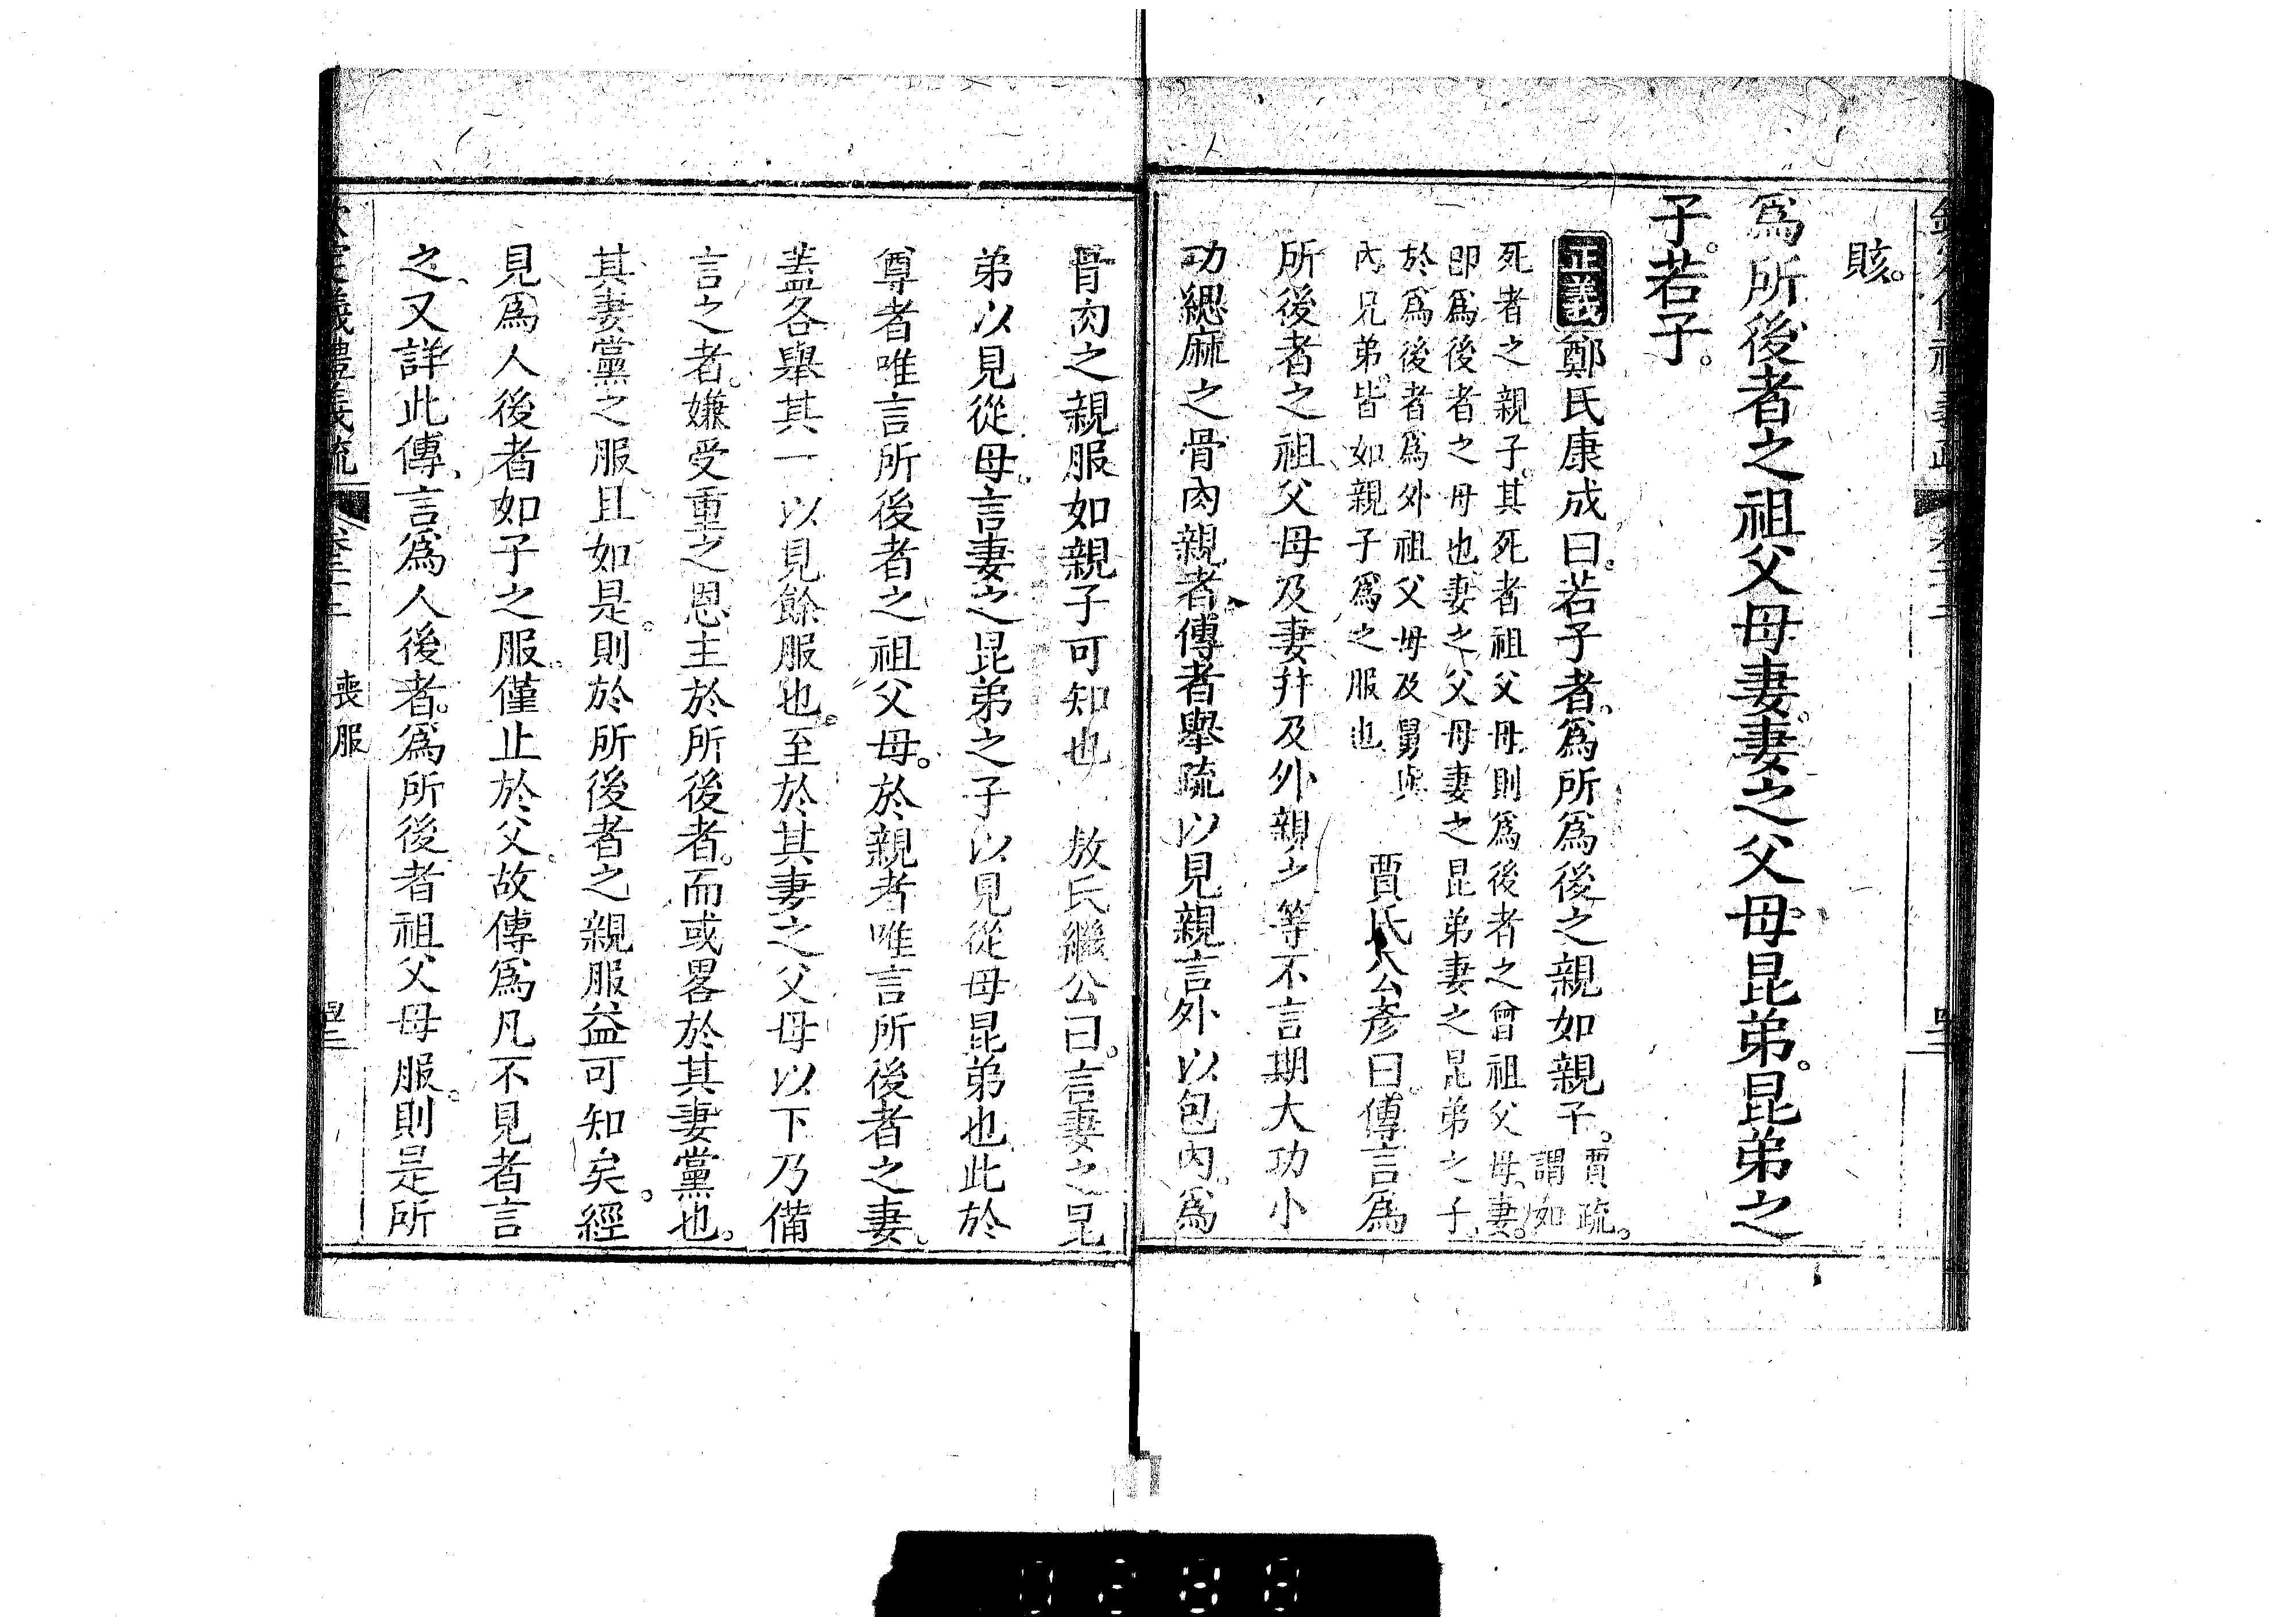 賅。
爲所後者之祖父母妻。妻之父母昆弟。昆弟之
子。若子。
正義鄭氏康成曰。若子者。爲所爲後之親如親子。賈疏。謂如
死者之親子。其死者祖父母。則爲後者之曾祖父母。妻。
即爲後者之母也。妻之父母妻之昆弟妻之昆弟之子。
於爲後者爲外祖父母及舅與
內兄弟。皆如親子爲之服也
賈氏公彥曰。傳言爲
所後者之祖父母及妻幷及外親之等不言期大功小
功緦麻之骨肉親者傳者舉疏以見親言外以包內。爲
骨肉之親服如親子可知也 敖氏繼公曰。言妻之昆
弟以見從母。言妻之昆弟之子以見從母昆弟也此於
尊者唯言所後者之祖父母。於親者唯言所後者之妻。
葢各舉其一以見餘服也。至於其妻之父母以下乃備
言之者。嫌受重之恩主於所後者。而或畧於其妻黨也。
其妻黨之服且如是。則於所後者之親服益可知矣。經
見爲人後者如子之服。僅止於父。故傳爲凡不見者言
之。又詳此傳。言爲人後者。爲所後者祖父母服。則是所
喪服